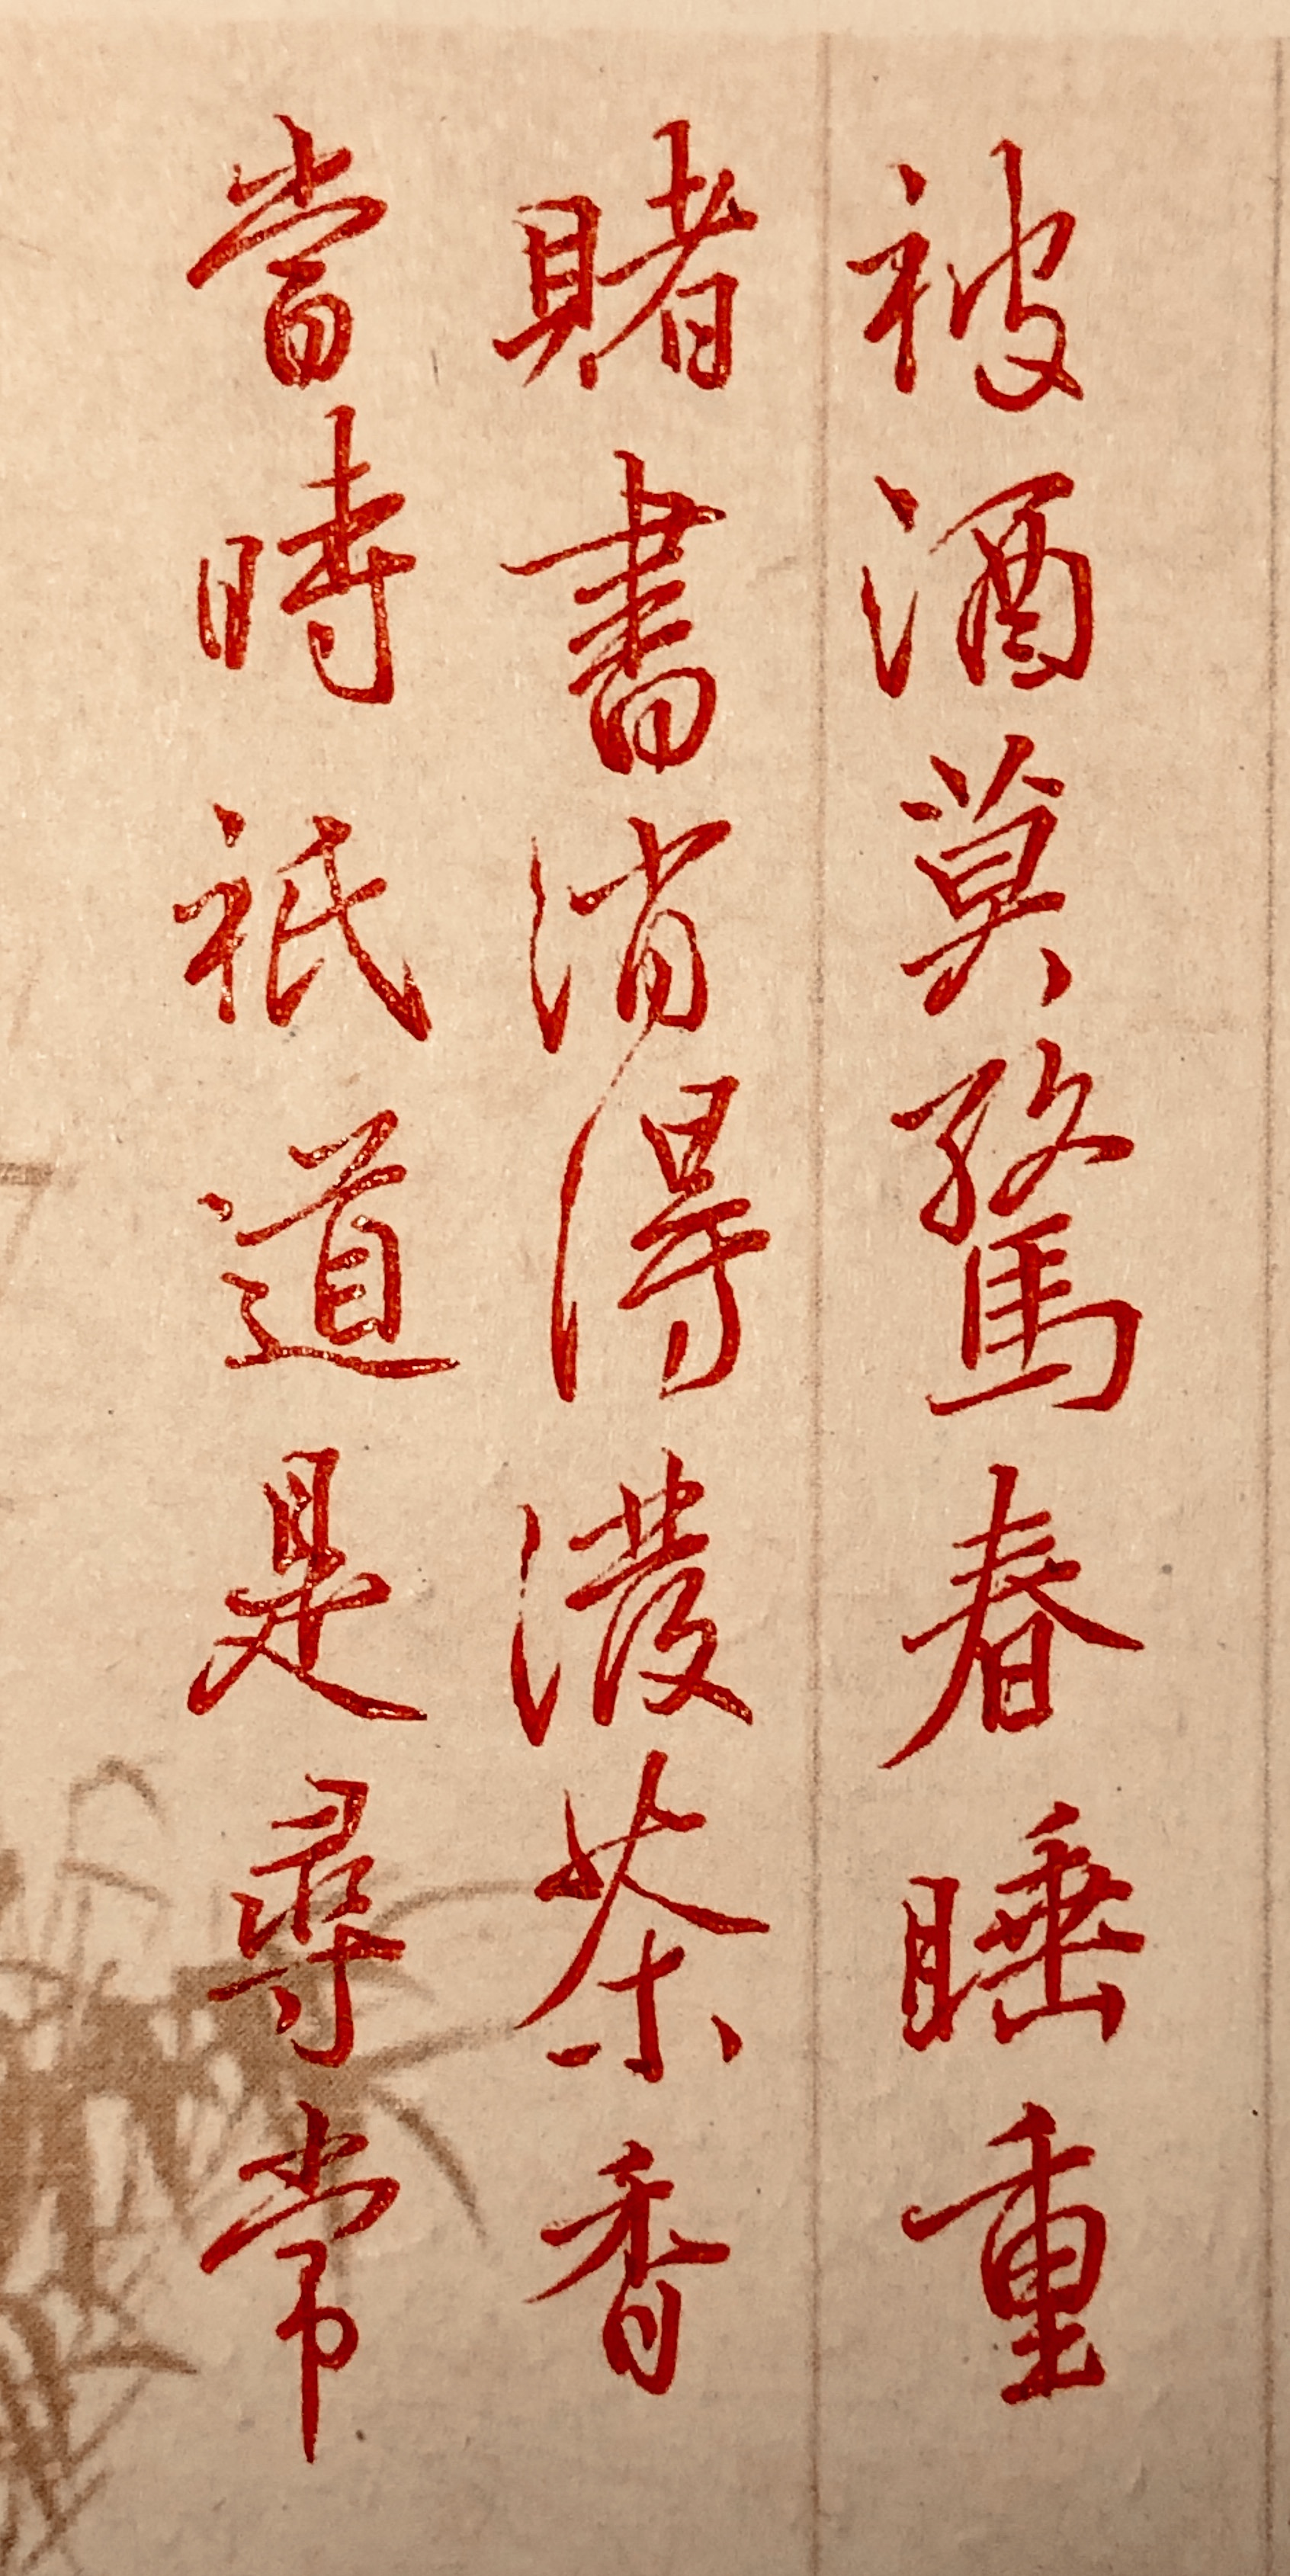 被酒莫驚春睡重
賭書消得潑茶香
當時祇道是尋常